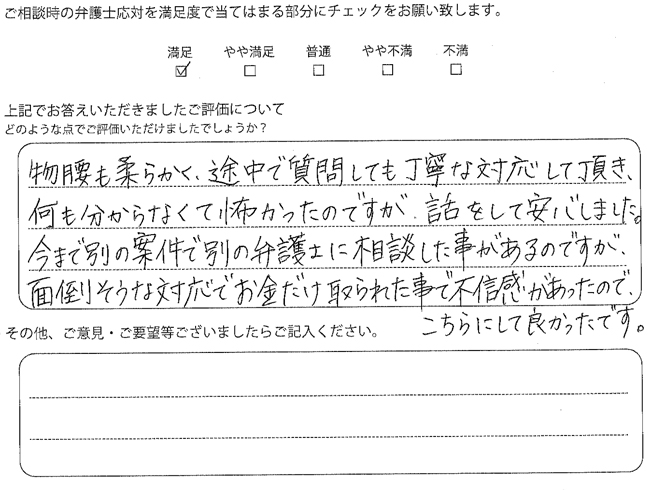 ご相談時の弁護士応対を満足度で当てはまる部分にチェックをお願い致します。
満足 やや満足 普通 やや不満 不満
☑ □ □ □ □
上記でお答えいただきましたご評価について
どのような点でご評価いただけましたでしょうか？
物腰も柔らかく、途中で質問しても丁寧な対応して頂き、
何も分からなくて怖かったのですが、話をして安心しました。
今まで別の案件で別の弁護士に相談した事があるのですが、
面倒そうな対応でお金だけ取られた事で不信感があったので、
こちらにして良かったです。
その他、ご意見・ご要望等ございましたらご記入ください。